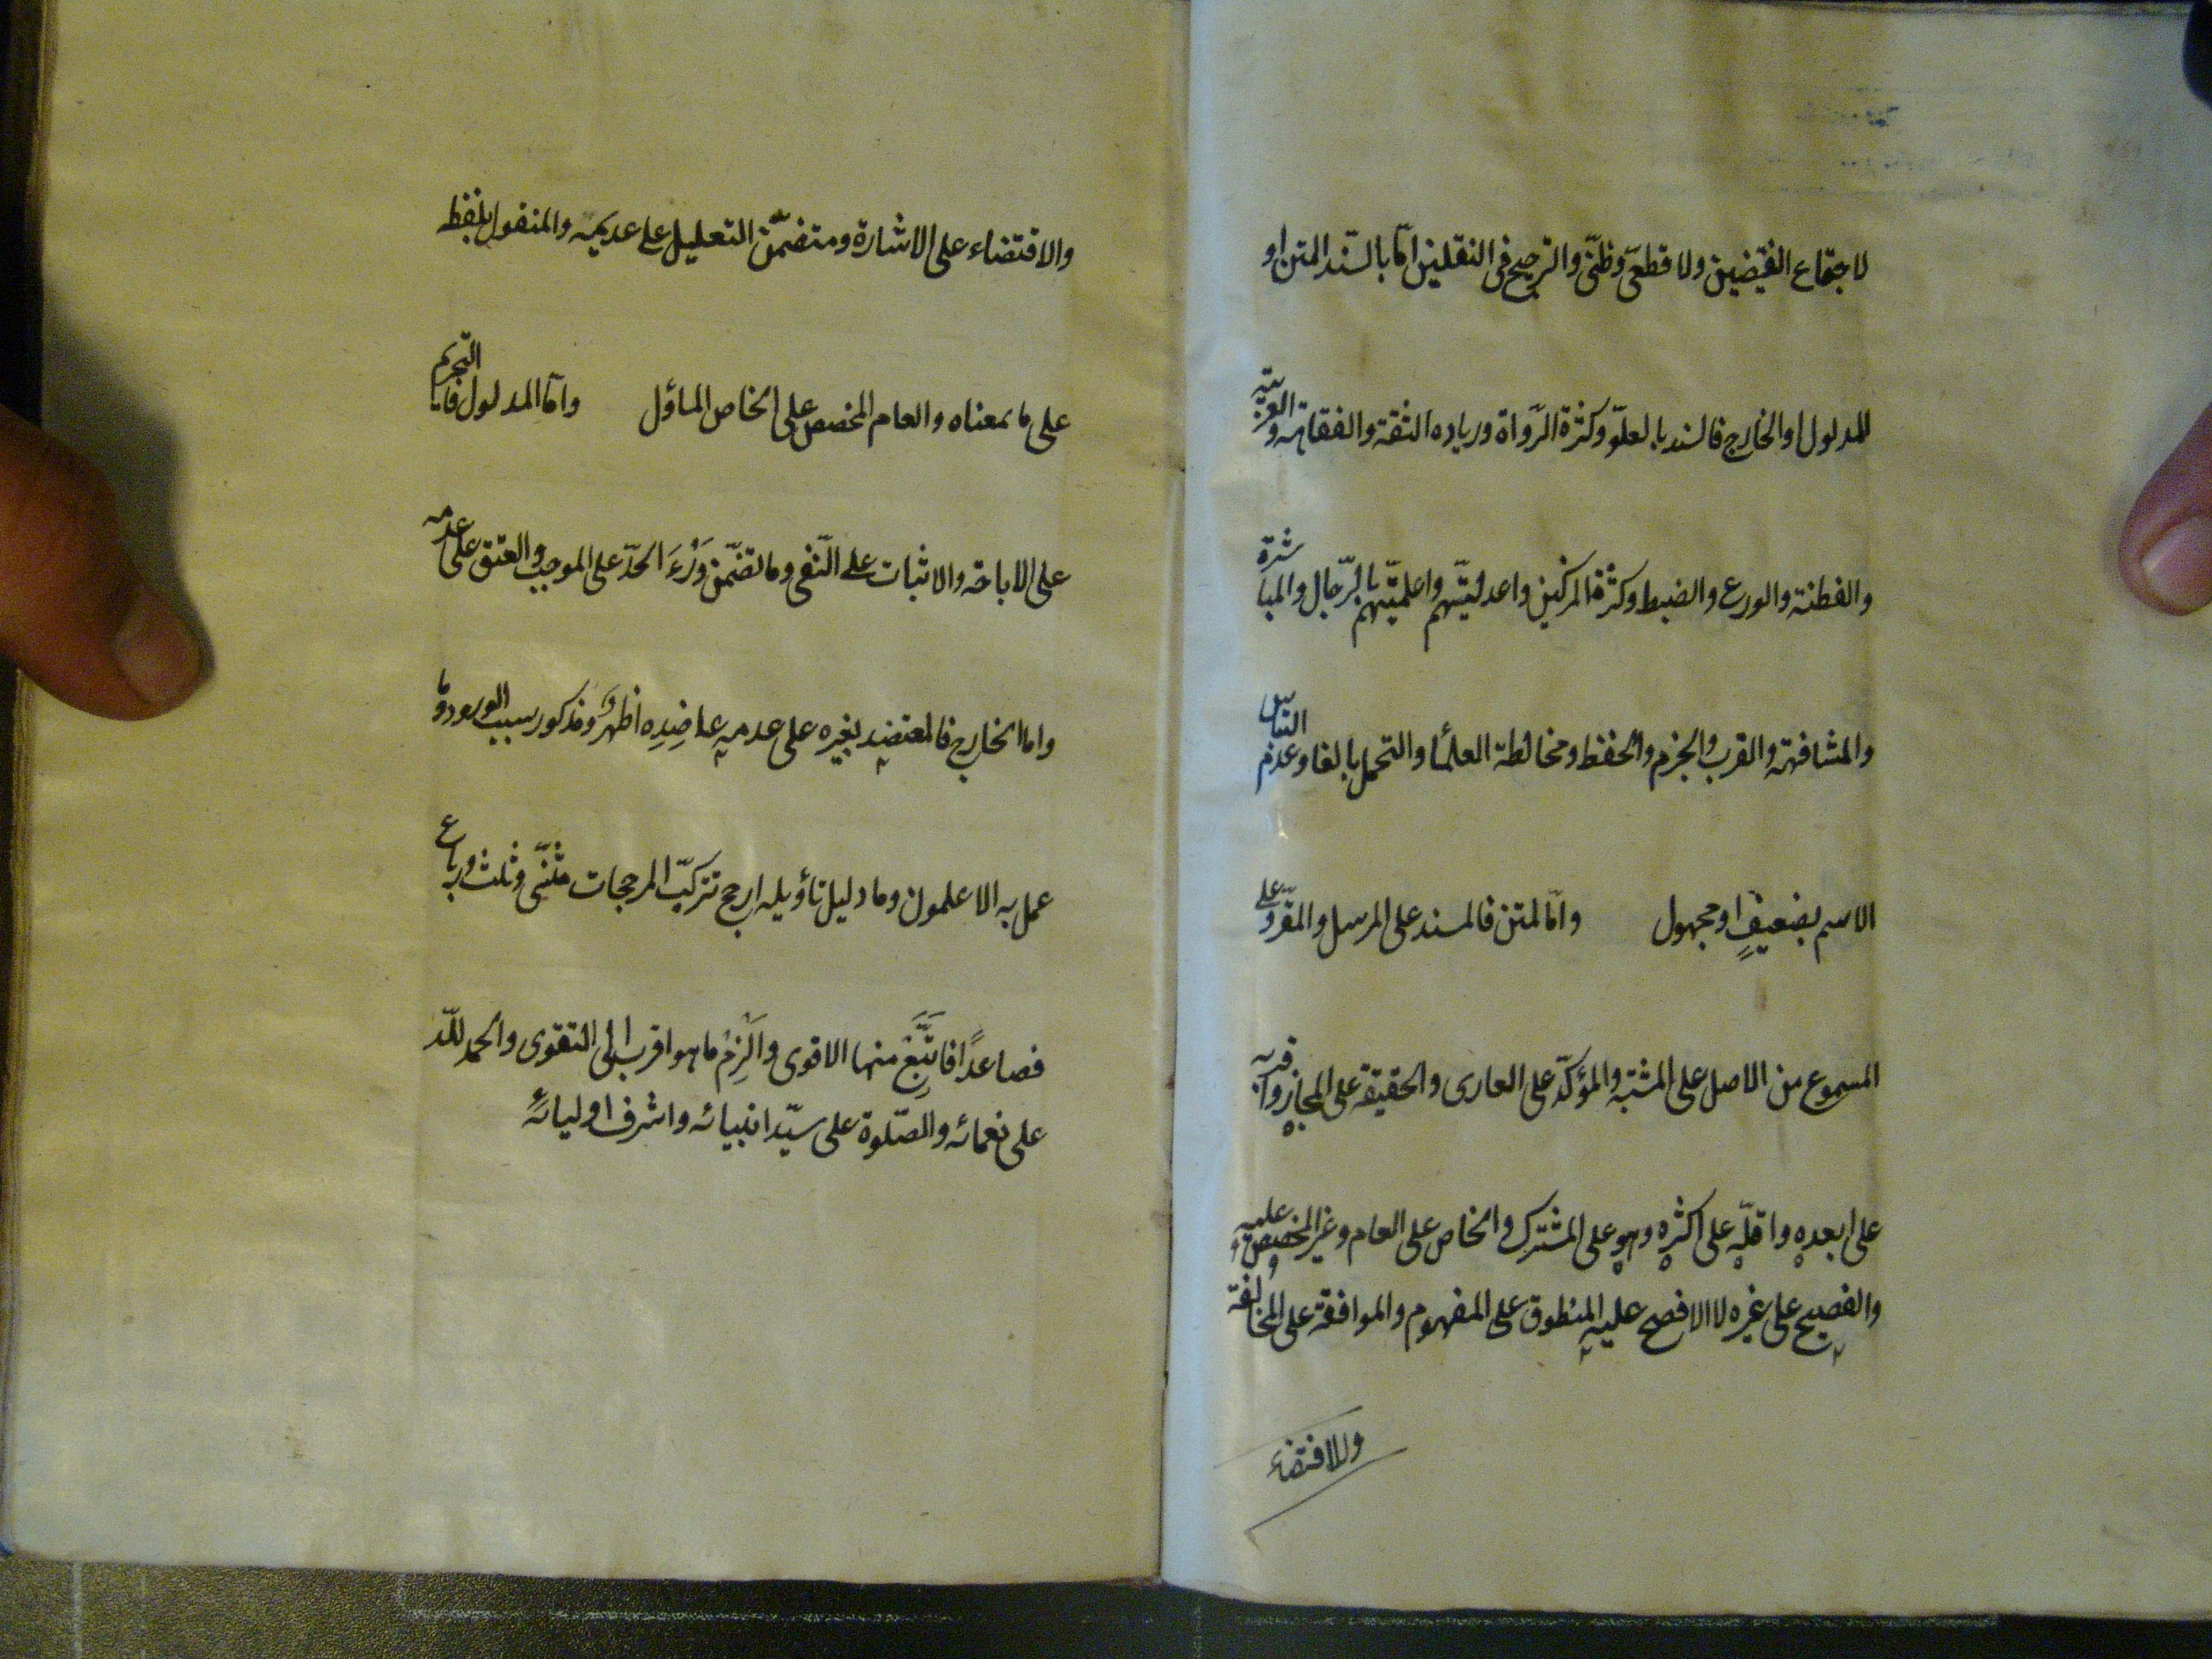 لاجتماع النقيضين ولا قطعىّ وظنّى والترجيح فى النقلين امّا بالسّند المتن او
المدلول او الخارج فالسند بالعلوّ وكثرة الرّواة وزياده الثقة والفقاهة والعربيّة
والفطنة والورع والضبط وكثرة المزكّين واعدليّتهم واعلميّتهم بالرّجال والمباشرة
والمشافهة والقرب والجزم والحفظ ومخالطة العلمأ والتحمل بالغا وعدم التباس
الاسم بضعيفٍ او مجهول وامّا المتن فالمسند على المرسل والمقروّ على
المسموع من الاصل على المشتبه والمؤكّد على العارى والحقيقة على المجاز واقربه
على ابعده واقلّه على اكثره وهو على المشترك والخاص على العام وغير المخصص عليه و
والفصيح على غيره لا الافصح عليه المنطوق على المفهوم والموافقة على المخالفة
والاقتضاء
والاقتضاء على الاشارة ومتضمّن التعليل على عديمه والمنقول بلفظه
على ما بمعناه والعام المخصص على الخاص الماؤل وامّا المدلول فالتحريم
على الاباحة والاثبات على النّفى وما تضمّن دَرْءَ الحدّ على الموجب والعتق على عدمه
واما الخارج فالمعتضد بغيره على عدمه عاضِدِه اظهر ومذكور سبب الورود وما
عمل به الاعلمون وما دليل تأويله ارجح تتركّب المرجحات مثنّى وثلث ورباع
فصاعدًا فاتَّبِعْ منها الاقوى وَالْزِمْ ما هو اقرب الى التقوى والحمد للّه
على نعمائه والصّلوة على سيّد انبيائه واشرف اوليائهٖ